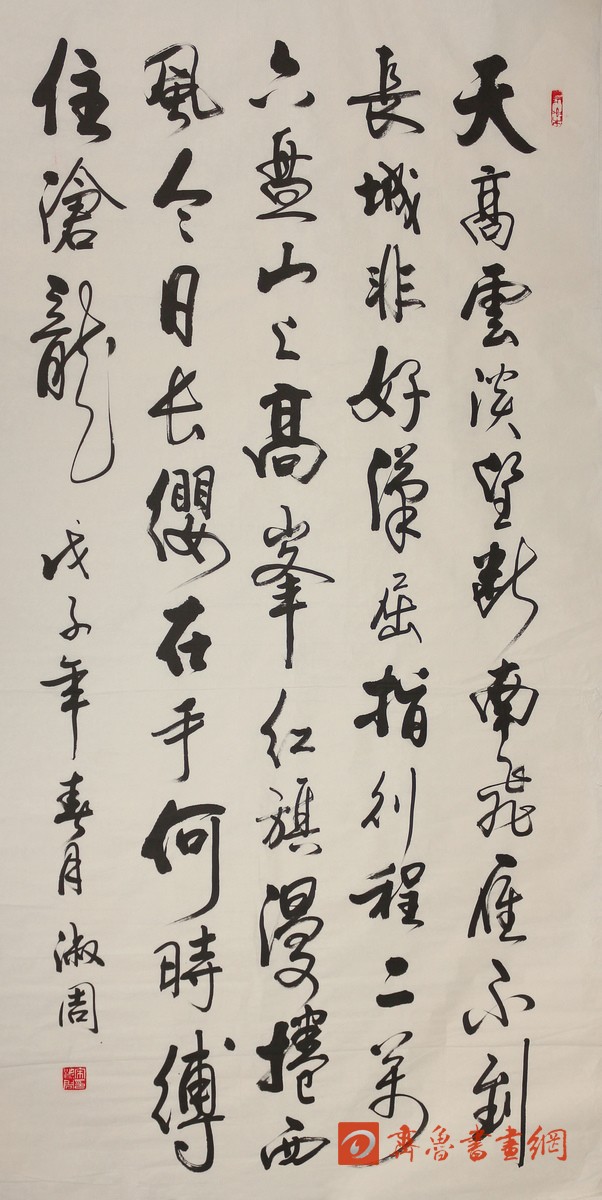 天高雲淡望断南飛雁不到
長城非好漢屈指行程二萬
六盤山上高峯红旗漫捲西
風今日长缨在手何時縛
住滄龍
戊子年春月淑周
齊魯書畫網